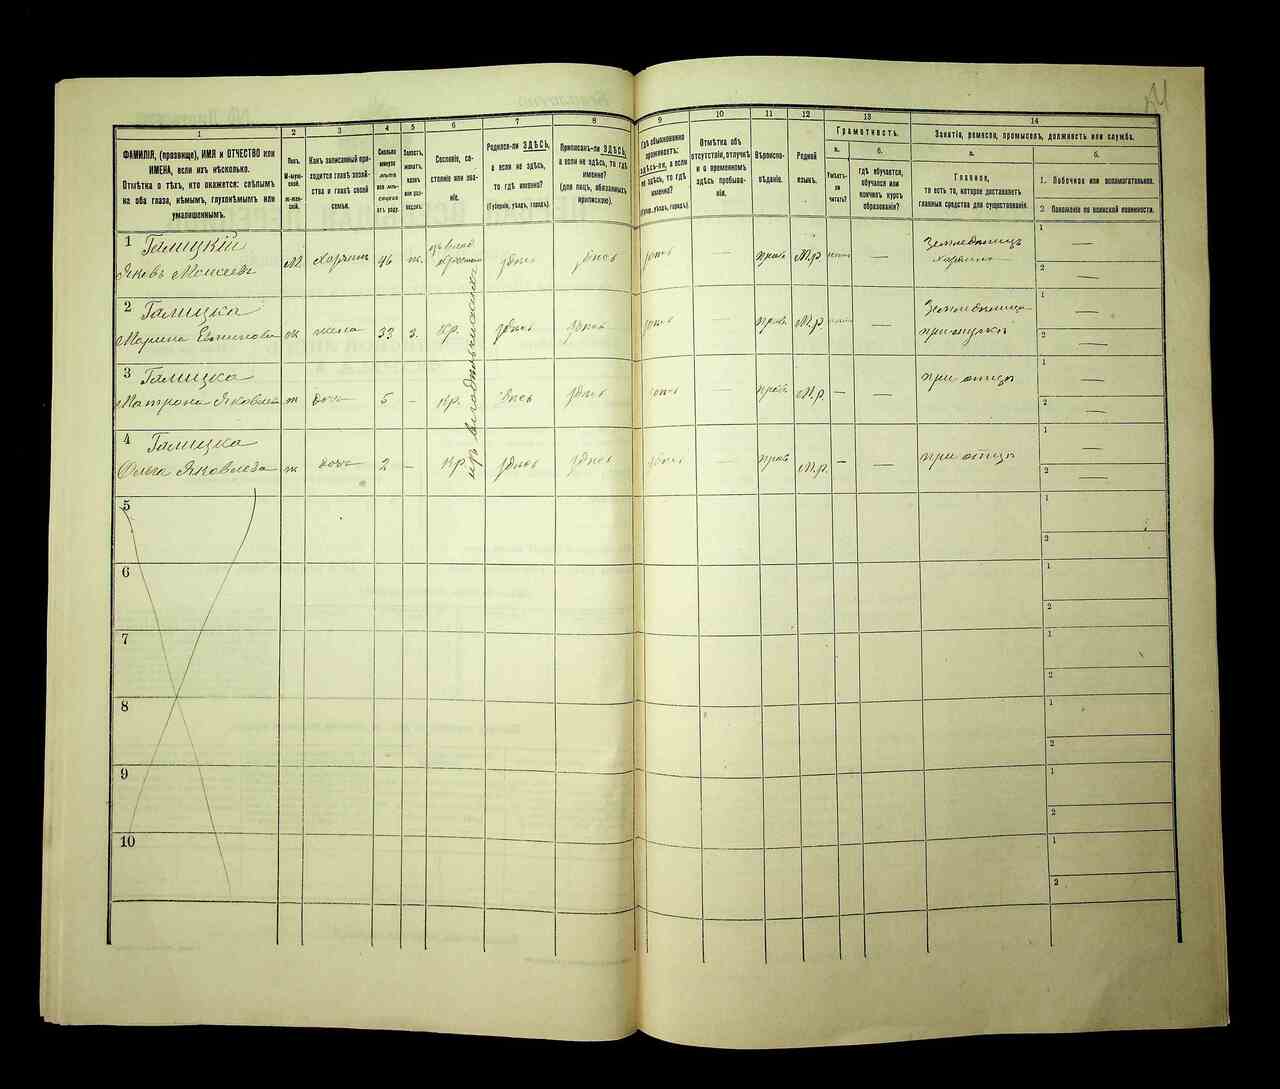 1
2
3
4
5
6
7
8
9
10
11
12
13
14
ФАМИЛІЯ, (прозвище), ИМЯ и ОТЧЕСТВО или
ИМЕНА, если ихъ нѣсколько.
Отмѣтка о тѣхъ, кто окажется: слѣпымъ
на оба глаза, нѣмымъ, глухонѣмымъ или
умалишеннымъ.
Полъ.
М-муж-
ской.
ж-жен-
скій.
Какъ записанный при-
ходится главѣ хозяй-
ства и главѣ своей
семьи.
Сколько
минуло
лѣтъ
или мѣ-
сяцевъ
отъ роду.
Холостъ,
женатъ,
вдовъ
или раз-
веденъ.
Сословіе, со-
стояніе или зва-
ніе.
Родился-ли ЗДѢСЬ,
а если не здѣсь,
то гдѣ именно?
(Губернія, уѣздъ, городъ).
Приписанъ-ли ЗДѢСЬ,
а если не здѣсь, то гдѣ
именно?
(для лицъ, обязанныхъ
припискою).
Гдѣ обыкновенно
проживаетъ:
здѣсь-ли, а если
не здѣсь, то гдѣ
именно?
Отмѣтка объ
отсутствіи, отлучкѣ
и о временномъ
здѣсь пребыва-
ніи.
Вѣроиспо-
вѣданіе.
Родной
языкъ.
Грамотность.
а.
Умѣетъ-
ли
читать?
б.
гдѣ обучается,
обучался или
кончилъ курсъ
образованія?
Занятіе, ремесло, промыселъ, должность или служба.
а.
Главное,
то есть то, которое доставляетъ
главныя средства для существованія.
б.
1. Побочное или вспомогательное.
2. Положеніе по воинской повинности.
1 Галицкій
Яковъ Моисеевъ
М.
хозяинъ
46
ж.
здѣсь
здѣсь
—
прав.
М.р.
—
Земледѣлецъ
хозяинъ
1 —
2 —
2 Галицка
Марина
ж
жена
33
з.
кр.
здѣсь
здѣсь
—
прав.
М.р.
—
Земледѣлица
при мужѣ
1 —
2 —
3 Галицка
Матрона Яковлева
ж
дочь
5
—
кр.
здѣсь
здѣсь
—
прав.
М.р.
—
—
при отцѣ
1 —
2 —
4 Галицка
Ольга Яковлева
ж
дочь
2
—
кр.
здѣсь
здѣсь
здѣсь
—
прав.
М.р.
—
—
при отцѣ
1 —
2 —
5
1
2
6
1
2
7
1
2
8
1
2
9
1
2
10
1
2